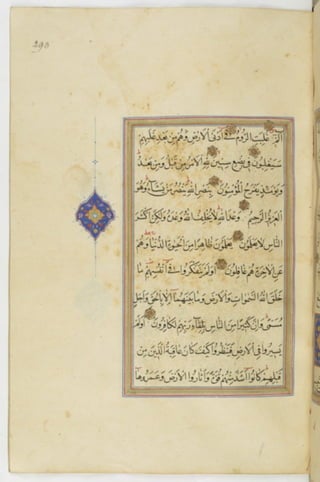 290
الٓمٓ غلبت الروم فى ادنى الارض وهم من بعد غلبهم
سيغلبون فى بضع سنين لله الامر من قبل ومن بعد
ويومئذ يفرح المؤمنون بنصر الله ينصر من يشاء وهو
العزيز الرحيم وعد الله لا يخلف الله وعده ولكن اكثر
الناس لا يعلمون يعلمون ظاهرا من الحيوة الدنيا وهم
عن الاخرة هم غافلون اولم يتفكروا فى انفسهم ما
خلق الله السموات والارض وما بينهما الا بالحق واجل
مسمى وان كثيرا من الناس بلقاء ربهم لكافرون اولم
يسيروا فى الارض فينظروا كيف كان عاقبة الذين من
قبلهم كانوا اشد منهم قوة واثاروا الارض وعمروها